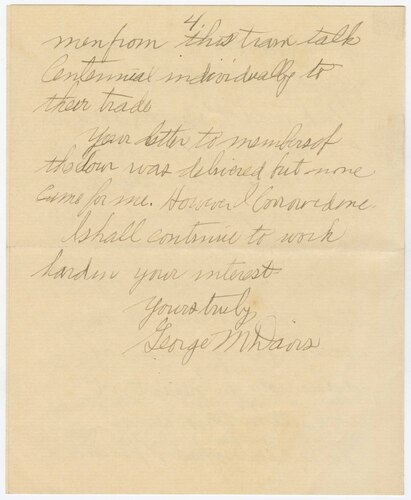 4.
men from this train talk
Centennial individually to
their trade
Your letter to members of
the tour was delivered but none
came for me. However I borrowed one.
I shall continue to work
hard in your interest
Yours truly
George M Davis